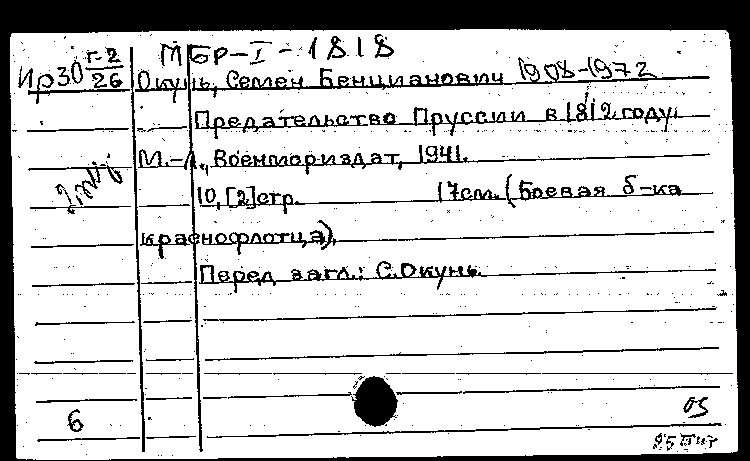 МБР-I-1818
Ир30 г-2/26 Окунь, Семен Бенцианович 1908-1972
Предательство Пруссии в 1812 году.
М.-Л., Военмориздат, 1941.
10, [2] стр. 17см. (Боевая б-ка
краснофлотца).
Перед загл.: С.Окунь.
6